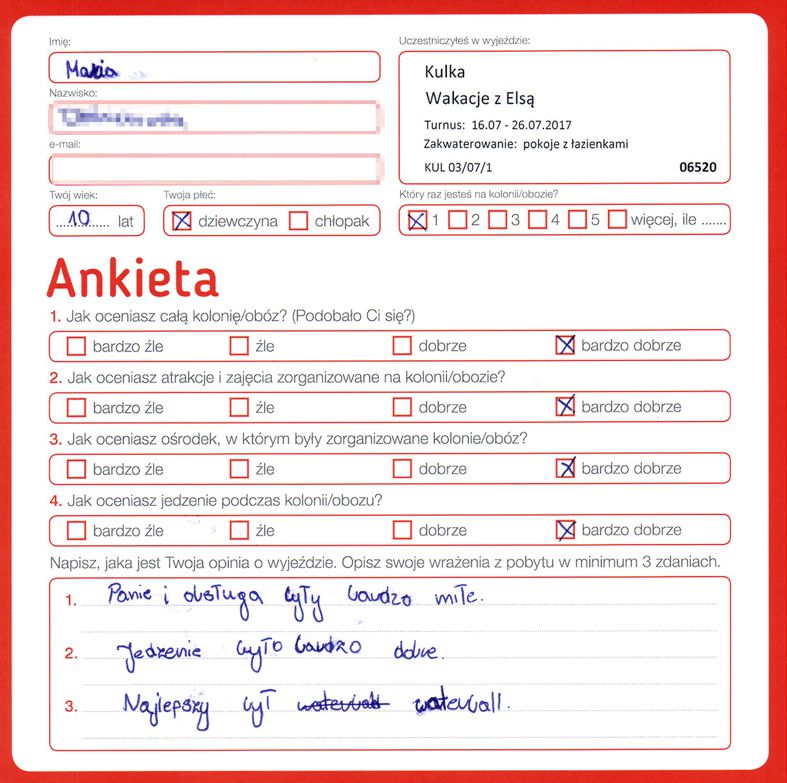 Imię:
Maria
Nazwisko:
e-mail:
Twój wiek:
10 lat
Twoja płeć:
dziewczyna chłopak
Uczestniczyłeś w wyjeździe:
Kulka
Wakacje z Elsą
Turnus: 16.07 - 26.07.2017
Zakwaterowanie: pokoje z łazienkami
KUL 03/07/1 06520
Który raz jesteś na kolonii/obozie?
1 2 3 4 5 więcej, ile .......
Ankieta
1. Jak oceniasz całą kolonię/obóz? (Podobało Ci się?)
bardzo źle źle dobrze bardzo dobrze
2. Jak oceniasz atrakcje i zajęcia zorganizowane na kolonii/obozie?
bardzo źle źle dobrze bardzo dobrze
3. Jak oceniasz ośrodek, w którym były zorganizowane kolonie/obóz?
bardzo źle źle dobrze bardzo dobrze
4. Jak oceniasz jedzenie podczas kolonii/obozu?
bardzo źle źle dobrze bardzo dobrze
Napisz, jaka jest Twoja opinia o wyjeździe. Opisz swoje wrażenia z pobytu w minimum 3 zdaniach.
1. Panie i obsługa były bardzo miłe.
2. Jedzenie było bardzo dobre.
3. Najlepszy był waterball.